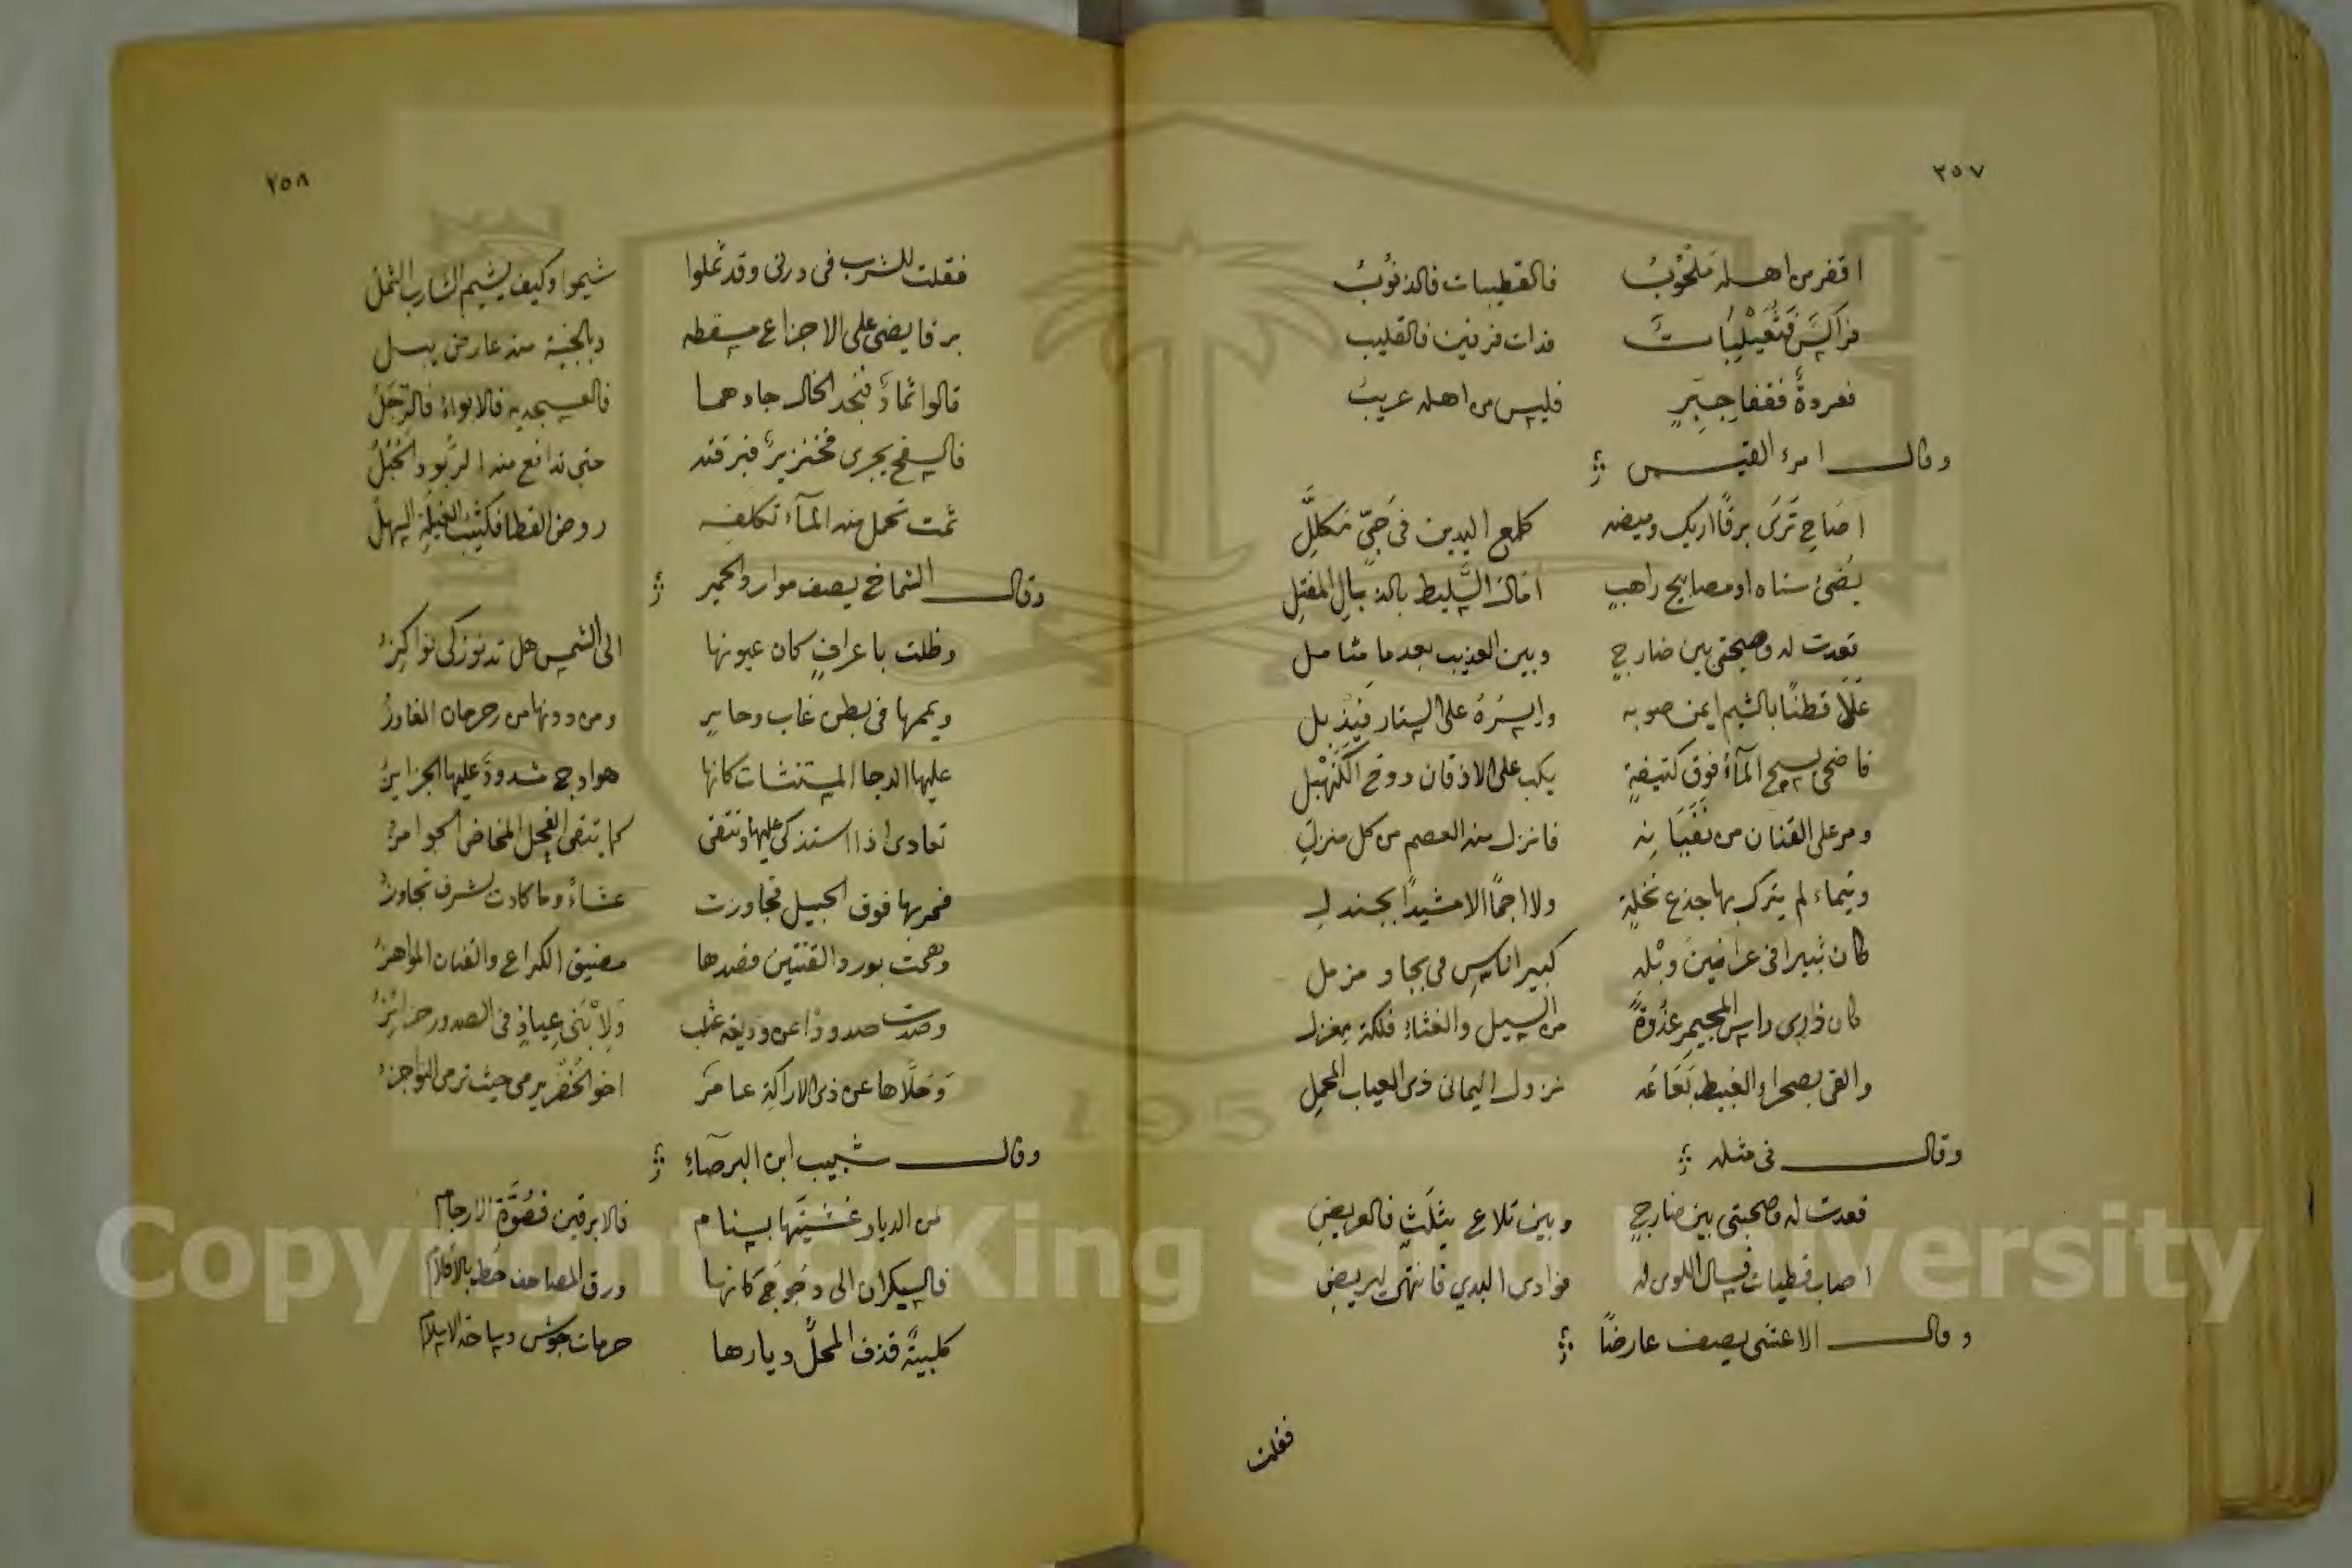 ٣٥٧
اقفر من اهله مَلْحُوْبُ فالقطيبات فالذنُوْبُ
فراكسٌ فَثُعَيْلِبَاتٌ فذات فرقين فالقليب
فعردةٌ فقفا حِبِرٍ فليس من اهله عريبُ
وقال امرء القيس
اصَاحِ تَرَى برقًا اريك وميضه كلمع اليدين فى حَبِيٍّ مُكَلَّلِ
يُضئ سناه او مصابيح راهبٍ امَالَ السَّليط بالذبالِ المفتلِ
قعدت له وصحبتى بين ضارجٍ وبين العذيب بعد ما متاملِ
عَلَا قطنًا بالشيم ايمن صوبه وايسرُهُ على الستار فَيَذْبلِ
فاضحى يسح المآءَ فوق كتيفةٍ يكب على الاذقان دوح الكَنَهْبَلِ
ومر على القنان من نَفَيَانِهِ فانزل منه العصم من كل منزلِ
وتيماء لم يترك بها جذع نخلةٍ ولا اجمًا الا مشيدًا بجندلِ
كان ثبيرا فى عرانينَ وَبْلِهِ كبير اناسٍ فى بجاد مزمل
كان ذرى راس المجيمرِ غُدْوَةً من السيل والغثاء فلكة مغزل
والقى بصحراء الغبيط بَعَاعَه نزول اليمانى ذى العياب المحملِ
وقال فى مثله
قعدت له وصحبتى بين ضارجٍ وبين تلاع يثلَثٍ فالعريضِ
اصاب قطيات فسال اللوى له فوادى البدي فانتحى ليريضِ
وقال الاعشى يصف عارضًا
فقلت
٣٥٨
فقلت للشرب فى درنى وقد ثملوا شيموا وكيف يشيم الشارب الثملُ
برقا يضئ على الاجزاع مسقطه وبالخبية منه عارض يسل
قالوا ثمادٌ فنجد الخال جادهما فالعسجديه فالابواءُ فالرِّجَلُ
فالسفح يجرى فخنزيرٌ فبرقته حتى تدافع منه الربو والحُبَلُ
ثمت تحمل منه المآء تكلفه روض القطا فكثيبُ الغينةِ السهلُ
وقال الشماخ يصف موارد الحمير
وظلت باعرافٍ كان عيونها الى الشمس هل تدنو زكى نواكزُ
ويممها فى بطن غاب وحايرٍ ومن دونها من رحرحان المفاوزُ
عليها الدجا المستنشات كانها هوادج مشدودٌ عليها الجزايزُ
تعادى اذا استذكى عليها وتتقى كما يتقى الفحل المخاض الجوامزُ
فمر بها فوق الجبيل فجاوزت عشاءً وما كادت بشرف تجاوزُ
وهمت بورد القنتين فصدها مضيق الكراع والقنان اللواهزُ
وصدت صدودًا عن وديعة عثلب ولِابْنَى عِياذٍ فى الصدور حزائزُ
وَحَلَّاها عن ذى الاراكة عامرٌ اخو الخُضْر يرمى حيث ترمى النواجزُ
وقال شبيب ابن البرصآءِ
لمن الديار غَشيتَها بسنام فالابرقين فصُوَّة الارجام
فالسيكران الى دَجوجَ كانها ورق المصاحف خط بالاقلام
كلبيةٌ قذف المحلُّ ديارها